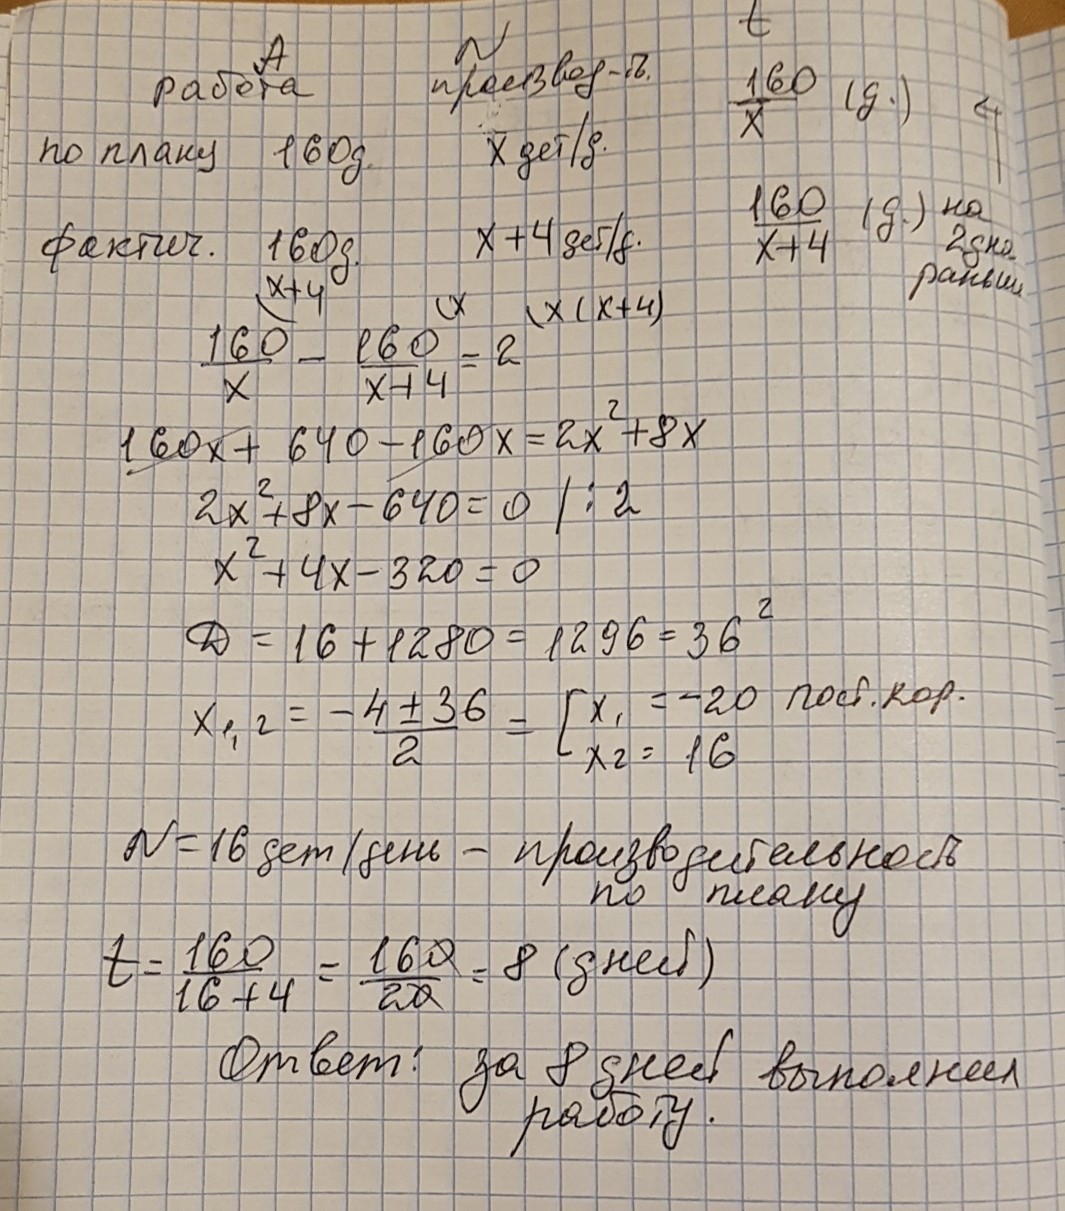 A N t
работа производ-ть. 160/x (д.)
по плану 160д. x дет/д.
фактич. 160д. x+4 дет/д. 160/(x+4) (д.) на 2 дня раньше
160/x \x+4 − 160/(x+4) \x = 2 \x(x+4)
160x + 640 − 160x = 2x² + 8x
2x² + 8x − 640 = 0 | : 2
x² + 4x − 320 = 0
D = 16 + 1280 = 1296 = 36²
x1,2 = (−4 ± 36)/2 = [ x₁ = −20 пост. кор.
x2 = 16
N = 16 дет/день − производительность
по плану
t = 160/(16+4) = 160/20 = 8 (дней)
Ответ: за 8 дней выполнил
работу.